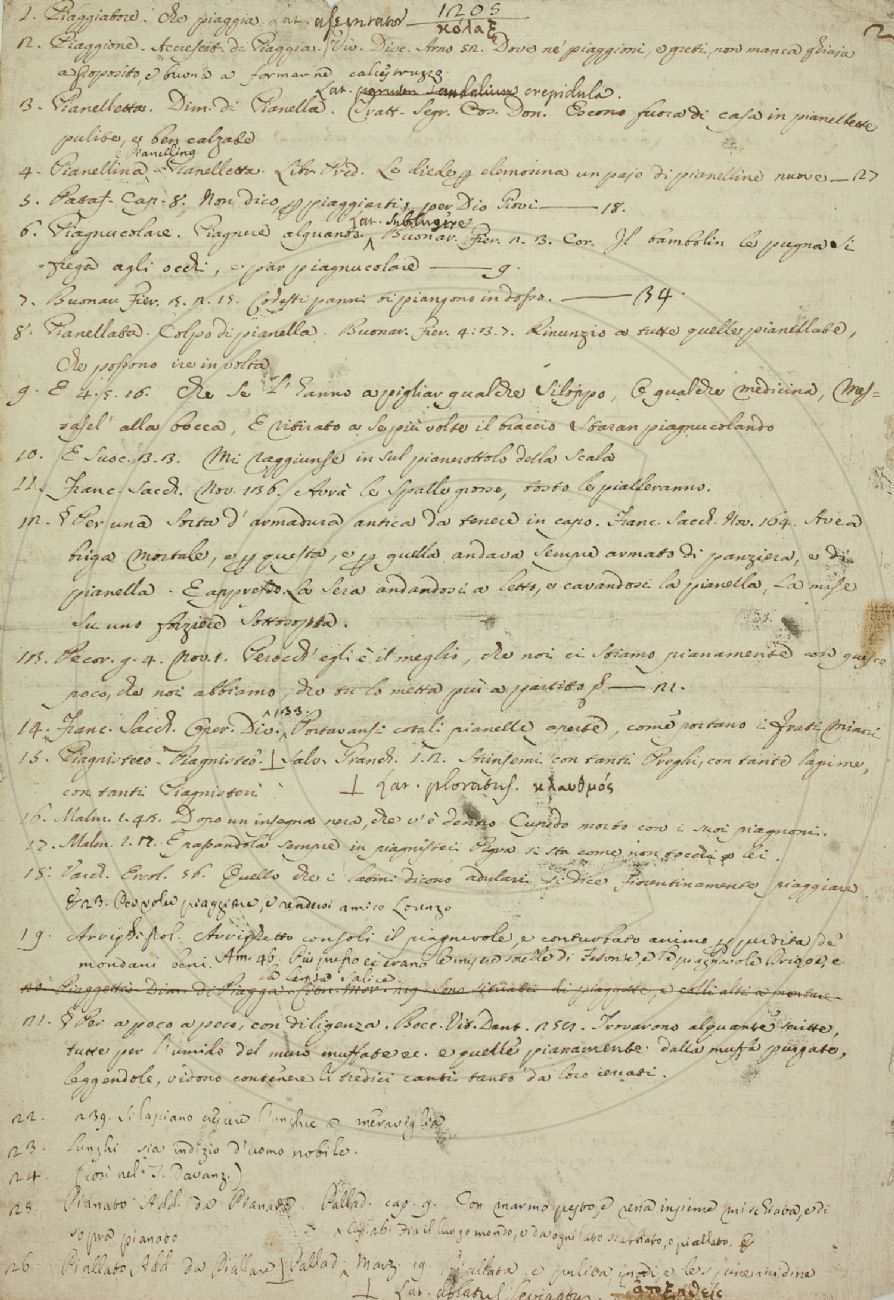 1205
2
1. Piaggiatore. Che piaggia. Lat. assentator κόλαξ
2. Piaggione. Accrescit. di Piaggia. Viv. Disc. Arno 52. Dove nè piaggioni, e greti, non manca ghiaja
a proposito, e buona a formarne calcistruzzo
Lat. crepidula.
3. Pianelletta. Dim. di Pianella. Tratt. Segr. Cos. Don. Escono fuora di casa in pianellette
pulite, e ben calzate
4. Pianellina. Pianelletta. Libr. Pred. Le diede per elemosina un pajo di pianelline nuove — 27
5. Pataf. Cap. 8. Non dico per piaggiarti, per Dio — 18.
Lat. sublugere
6. Piagnucolare. Piagnere alquanto. Buonar. Fier. 2. 3. Cor. Il bambolin le pugna si
frega agli occhi, e par piagnucolare — 9.
7. Buonar. Fier. Codesti panni vi piangono indosso. — 34.
8. Pianellata. Colpo di pianella. Buonar. Fier. 4. 3. 7. Rinunzio a tutte quelle pianellate,
che possono ire in volta
9. E 4. 5. 16. Che se l'hanno a pigliar qualche siloppo, O qualche medicina, Mes-
sasel' alla bocca, E ritirato a se più volte il braccio Staran piagnucolando
10. E Suoc. 3. 3. Mi raggiunse in sul pianerottolo della scala
11. Franc. Sacch. Nov. 136. Avrà le spalle grosse, tosto le pialleranno.
12. § Per una sorta d'armadura antica da tenere in capo. Franc. Sacch. Nov. 164. Avea
briga mortale, e per questa, e per quella andava sempre armato di panziera, e di
pianella. E appresso. La sera andandosi a letto, e cavandosi la pianella, la mise
su uno forziere sottosopra.
13. Pecor. g. 4. Nov. 1. Perocch' egli è il meglio, che noi ci stiamo pianamente con questo
poco, che noi abbiamo, che tu lo metta più a partito — 21.
14. Franc. Sacch. Oper. Div. 133. Portavansi cotali pianelle aperte, come portano i Frati Minori
15. Piagnisteo. Salv. Granch. 1. 2. Strinsemi con tanti Preghi, con tante lagrime,
con tanti Piagnistei
Lat. ploratus. κλαυθμός
16. Malm. 1. 45. Dopo un'insegna nera, che v'è dentro Cupido morto con i suoi piagnoni.
17. Malm. 2. E passandola sempre in piagnistei Pigra si sta come non tocchi a lei.
18. Varch. Ercol. 56. Quello che i latini dicono adulari si dice fiorentinamente piaggiare
E 23. Per voler piaggiare, e rendersi amico Lorenzo
19. Arrigh. Arrighetto consoli il piagnevole e conturbato animo per perdita de'
mondani beni. Am. 46.
20. Piaggetta Dim. Di Piaggia
21. § Per a poco a poco, con diligenza. Bocc. Vit. Dant. 252. Trovarono alquante scritte,
tutte per l'umido del muro muffate ec. e quelle pianamente dalla muffa purgate,
leggendole, vidono contenere li tredici canti tanto da loro cercati.
22. 239. Si lasciano crescere l'unghie a meraviglia
23. lunghi sia indizio d'uomo nobile.
24. (così nel T. Davanz.)
25. Pianato Add. da Pianare. Pallad. cap. 9. Con marmo pesto, e rena insieme mischiata, e di
sopra pianato
sia il luogo mondo, e da ogni lato scalbato, e piallato.
26. Piallato Add. da Piallare Pallad. Marz. 19. Piallata, e pulita
Lat.